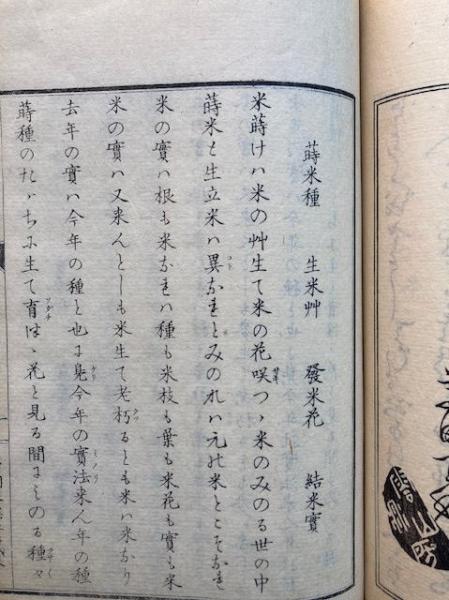 蒔米種 生米艸 發米花 結米實
米蒔けハ米の艸生て米の花咲つゝ米のみのる世の中
蒔米と生立米ハ異なれとみのれハ元の米とこそなれ
米の實ハ根も米なれハ種も米枝も葉も米花も實も米
米の實ハ又来んとしも米生て老朽るとも米ハ米なり
去年の實ハ今年の種と也に今年の實法来ん年の種
蒔種のたゝちに生て育はゝ花と見る間にみのる種々